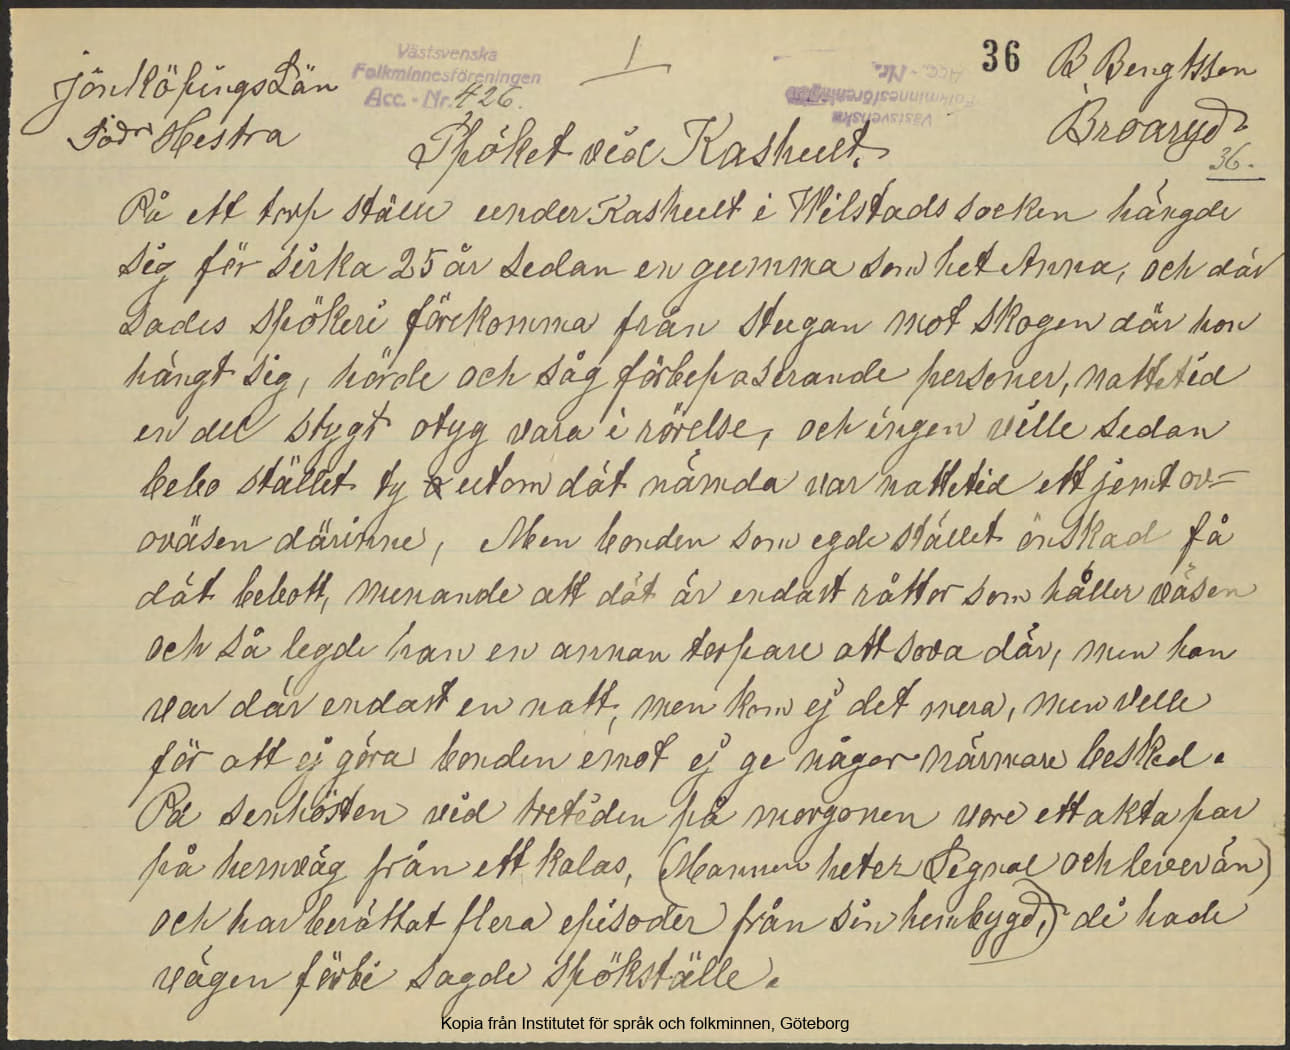 Jönköpings Län
Södr Hestra
Västsvenska
Folkminnesföreningen
Acc. - Nr. 426.
1
36
B Bengtsson
Broaryd
36.
Spöket vid Kashult.
På ett torp ställe under Kashult i Wilstads socken hängde
sig för sirka 25 år sedan en gumma som het Anna, och där
sades spökeri förekomma från stugan mot skogen där hon
hängt sig, hörde och såg förbepaserande personer, nattetid
en del stygt otyg vara i rörelse, och ingen ville sedan
bebo stället ty utom dät nämda var nattetid ett jemt ov=
oväsen därinne, Men bonden som egde stället önskad få
dät bebott, menande att dät är endast råttor som håller väsen
och så legde han en annan torpare att sova där, men han
var där endast en natt, men kom ej det mera, men velle
för att ej göra bonden emot ej ge någor närmare besked.
På senhösten vid tretiden på morgonen vore ett akta par
på hemväg från ett kalas, (Mannen heter Signal och lever än)
och har berättat flera episoder från sin hembygd,) di hade
vägen förbi sagde spökställe.
Kopia från Institutet för språk och folkminnen, Göteborg